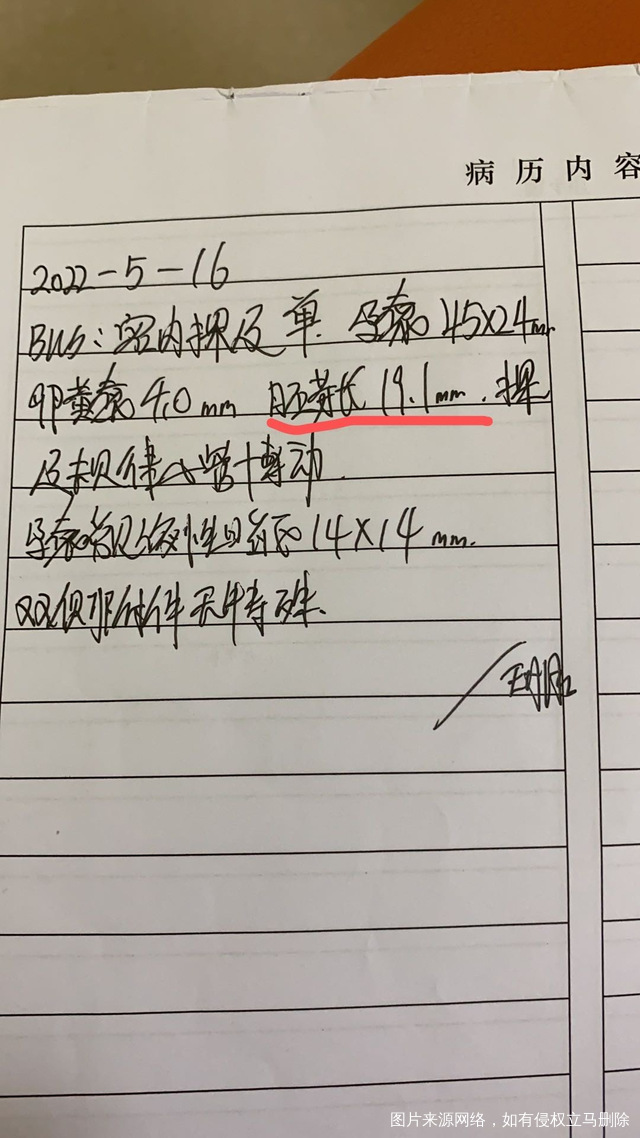 病历内容
2022-5-16
BUS:宫内探及单 孕囊45×24mm
卵黄囊4.0mm 胚芽长19.1mm.探
及规律心管搏动.
孕囊旁见 14×14mm.
双侧附件未特殊.
图片来源网络，如有侵权立马删除